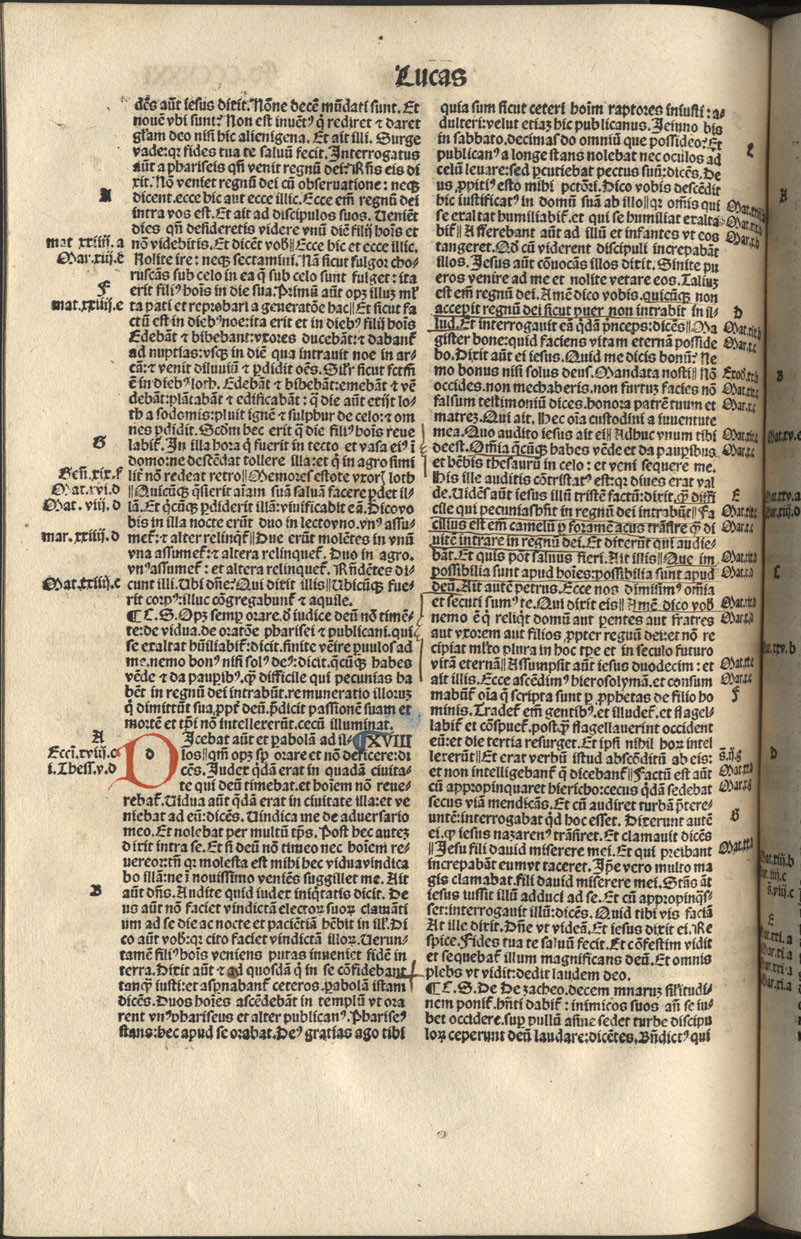 Lucas
dēs aūt iesus dixit. Nōne decē mūdati sunt. Et
nouē vbi sunt? Non est inuētꝰ q̇ rediret ⁊ daret
gl̄am deo nisi hic alienigena. Et ait illi. Surge
vade: qꝛ fides tua te saluū fecit. Interrogatus
aūt a phariseis qn̄ venit regnū dei? Rn̄s eis di
xit. Nō veniet regnū dei cū obseruatione: neqꝫ
dicent. ecce hic aut ecce illic. Ecce em̄ regnū dei
intra vos est. Et ait ad discipulos suos. Ueniēt
dies qn̄ desideretis videre vnū diē filij hoīs et
nō videbitis. Et dicēt vob̄ || Ecce hic et ecce illic.
Nolite ire: neqꝫ sectamini. Nā sicut fulgor cho⸗
ruscās sub celo in ea q̄ sub celo sunt fulget: ita
erit filiꝰ hoīs in die sua. Primū aūt opꝫ illuꝫ ml̄
ta pati et reprobari a generatōe hac || Et sicut fa
ctū est in diebꝰ noe: ita erit et in diebꝰ filij hoīs
Edebāt ⁊ bibebant: vxores ducebāt: ⁊ dabanť
ad nuptias: vsqꝫ in diē qua intrauit noe in ar⸗
cā: ⁊ venit diluuiū ⁊ ꝑdidit oēs. Sil̄r sicut fctm̄
ē in diebꝰ loth. Edebāt ⁊ bibebāt: emebāt ⁊ vē
debāt: plātabāt ⁊ edificabāt: q̄ die aūt exijt lo⸗
th a sodomis: pluit ignē ⁊ sulphur de celo: ⁊ om
nes ꝑdidit. Scd̄m hec erit q̄ die filiꝰ hoīs reue
labiť. In illa hora q̇ fuerit in tecto et vasa eiꝰ ī
domo: ne descēdat tollere illa: et q̇ in agro simi
liť nō redeat retro || Memores estote vxorꝭ loth
|| Quicūqꝫ q̄sierit aīam suā saluā facere ꝑdet il⸗
lā. Et q̇cūqꝫ ꝑdiderit illā: viuificabit eā. Dico vo
bis in illa nocte erūt duo in lecto vno. vnꝰ assu⸗
meť: ⁊ alter relinq̄ť || Due erūt molētes in vnū
vna assumeť: ⁊ altera relinqueť. Duo in agro.
vnꝰ assumeť: et altera relinqueť. Rn̄dētes di⸗
cunt illi. Ubi dn̄e? Qui dixit illis || Ubicūqꝫ fue⸗
rit corpꝰ: illuc cōgregabunť ⁊ aquile.
¶ C. S. Opꝫ semp̱ orare. d̄ iudice deū nō timē⸗
te: de vidua. de oratōe pharisei ⁊ publicani. qui
se exaltat hūiliabiť: dicit. sinite venire ꝑuulos ad
me. nemo bonꝰ nisi solꝰ deꝰ: dicit. q̇cūqꝫ habes
vēde ⁊ da pauꝑibꝰ. ꝙ difficile qui pecunias ha
bēt in regnū dei intrabūt. remuneratio illoꝝ
q̇ dimittūt sua. ꝓpť deū. p̄dicit passionē suam et
mortē et ip̄i nō intellexerūt. cecū illuminat.
DIcebat aūt et ꝑabolā ad il⸗ ¶XVIII
los || qm̄ opꝫ sp̄ orare et nō deficere: di
cēs. Iudex q̇dā erat in quadā ciuita⸗
te qui deū timebat. et hoīem nō reue⸗
rebať. Uidua aūt q̄dā erat in ciuitate illa: et ve
niebat ad eū: dicēs. Uindica me de aduersario
meo. Et nolebat per multū tp̄s. Post hec auteꝫ
dixit intra se. Et si deū nō timeo nec hoīem re⸗
uereor: tn̄ qꝛ molesta est mihi hec vidua vindica
bo illā: ne ī nouissimo veniēs suggillet me. Ait
aūt dn̄s. Audite quid iudex iniq̇tatis dicit. De
us aūt nō faciet vindictā electoꝝ suoꝝ clamāti
um ad se die ac nocte et paciētiā hēbit in ill̓. Di
co aūt vob̄: qꝛ cito faciet vindictā illoꝝ. Uerun⸗
tamē filiꝰ hoīs veniens putas inueniet fidē in
terra. Dixit aūt ⁊ ad quosdā q̇ in se cōfidebant
tanq̄ iusti: et asꝑnabanť ceteros. parabolā istam
dicēs. Duos hoīes ascēdebāt in templū vt ora
rent vnꝰ phariseus et alter publicanꝰ. Phariseꝰ
stans: hec apud se orabat. Deꝰ gratias ago tibi
A
mat. xxiiij. a
Mar. xiij. c
F
mat. xxiiij. e
G
Geñ. xix. f
Mat. xvi. d
Mat. viij. d
mar. xxiiij. d
Mat. xxiiij. c
A
Ecc̄i. xviij. c
i. Thess. v. d
B
quia sum sicut ceteri hoīm raptores iniusti: a⸗
dulteri: velut etiaꝫ hic publicanus. Ieiuno bis
in sabbato. decimas do omniū que possideo. Et
publicanꝰ a longe stans nolebat nec oculos ad
celū leuare: sed ꝑcutiebat pectus suū: dicēs. De
us ꝓpitiꝰ esto mihi pctōri. Dico vobis descēdit
hic iustificatꝰ in domū suā ab illo || qꝛ omīs qui
se exaltat humiliabiť. et qui se humiliat exalta⸗
biť || Afferebant aūt ad illū et infantes vt eos
tangeret. Qd̄ cū viderent discipuli increpabāt
illos. Iesus aūt cōuocās illos dixit. Sinite pu
eros venire ad me et nolite vetare eos. Taliuꝫ
est em̄ regnū dei. Amē dico vobis. quicūqꝫ non
acceꝑit regnū dei sicut puer non intrabit in il⸗
lud. Et interrogauit eū q̇dā p̄nceps: dicēs || Ma
gister bone: quid faciens vitam eternā posside
bo. Dixit aūt ei iesus. Quid me dicis bonū? Ne
mo bonus nisi solus deus. Mandata nosti || Nō
occides. non mechaberis. non furtuꝫ facies nō
falsum testimoniū dices. honora patrē tuum et
matreꝫ. Qui ait. Hec oīa custodiui a iuuentute
mea. Quo audito iesus ait ei || Adhuc vnum tibi
deest. Omīa q̄cūqꝫ habes vēde et da pauꝑibus
et hēbis thesaurū in celo: et veni sequere me.
His ille auditis cōtristatꝰ est: qꝛ diues erat val
de. Uidēs aūt iesus illū tristē factū: dixit. ꝙ̄ diffi
cile qui pecunias hn̄t in regnū dei intrabūt || Fa
cilius est em̄ camelū ꝑ foramē acus trāsire ꝙ̄ di
uitē intrare in regnū dei. Et dixerūt qui audie⸗
bāt. Et quis pōt saluus fieri. Ait illis || Que im
possibilia sunt apud hoīes: possibilia sunt apud
deū. Ait autē petrus. Ecce nos dimisimꝰ omīa
et secuti sumꝰ te. Qui dixit eis || Amē dico vob̄
nemo ē q̇ reliq̇t domū aut pentes aut fratres
aut vxorem aut filios ꝓpter regnū dei: et nō re
cipiat ml̄to plura in hoc tp̄e et in seculo futuro
vitā eternā || Assumpsit aūt iesus duodecim: et
ait illis. Ecce ascēdimꝰ hierosolymā. et consum
mabūť oīa q̄ scripta sunt ꝑ ꝓphetas de filio ho
minis. Tradeť em̄ gentibꝰ. et illudeť. et flagel⸗
labiť et cōspueť. post. ꝙ̄ flagellauerint occident
eū: et die tertia resurget. Et ipsi nihil hoꝝ intel
lexerūt || Et erat verbū istud abscōditū ab eis:
et non intelligebanť q̄ dicebanť || Factū est aūt
cū appropinquaret hiericho: cecus q̇dā sedebat
secus viā mendicās. Et cū audiret turbā p̄tere⸗
untē: interrogabat q̇d hoc esset. Dixerunt autē
ei. ꝙ iesus nazarenꝰ trāsiret. Et clamauit dicēs
|| Iesu fili dauid miserere mei. Et qui preibant
increpabāt eum vt taceret. Ip̄e vero multo ma
gis clamabat. fili dauid miserere mei. Stās aūt
iesus iussit illū adduci ad se. Et cū appropinq̄s⸗
set: interrogauit illū: dicēs. Quid tibi vis faciā
At ille dixit. Dn̄e vt videā. Et iesus dixit ei. Re
spice. Fides tua te saluū fecit. Et cōfestim vidit
et sequebať illum magnificans deū. Et omnis
plebs vt vidit: dedit laudem deo.
¶ C. S. De zacheo. decem mnaruꝫ sil̄itudi⸗
nem poniť. hn̄ti dabiť: inimicos suos añ se iu⸗
bet occidere. sup̱ pullū asine sedet turbe discipu
loꝝ ceperunt deū laudare: dicētes. Bn̄dictꝰ qui
C
D
E
F
G